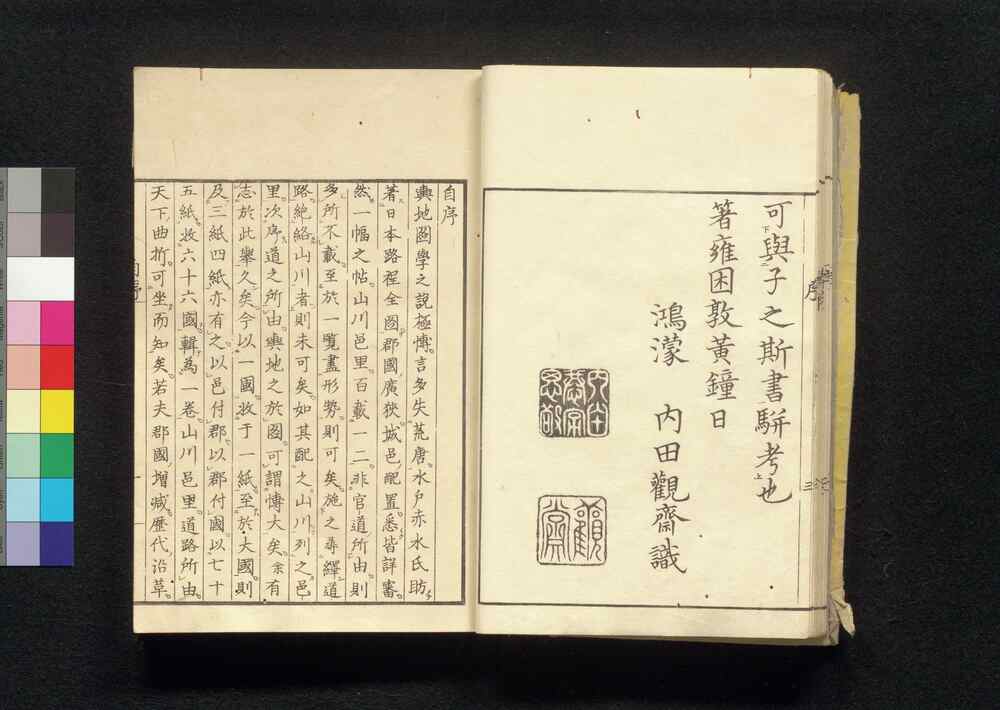 可與子之斯書駢考也
著雍困敦黃鐘日
鴻濛 內田觀齋識
自序
輿地圖學之說極慱言多失荒唐水戶赤水氏昉
著日本路程全圖郡國廣狹城邑配置悉皆詳審
然一幅之帖山川邑里百載一二非官道所由則
多所不載至於一覽盡形勢則可矣施之尋繹道
路絶絡山川者則未可矣如其配之山川列之邑
里次序道之所由輿地之於圖可謂慱大矣余有
志於此舉久矣今以一國收于一紙至於大國則
及三紙四紙亦有之以邑付郡以郡付國以七十
五紙收六十六國輯為一卷山川邑里道路所由
天下曲折可坐而知矣若夫郡國增減歷代沿革